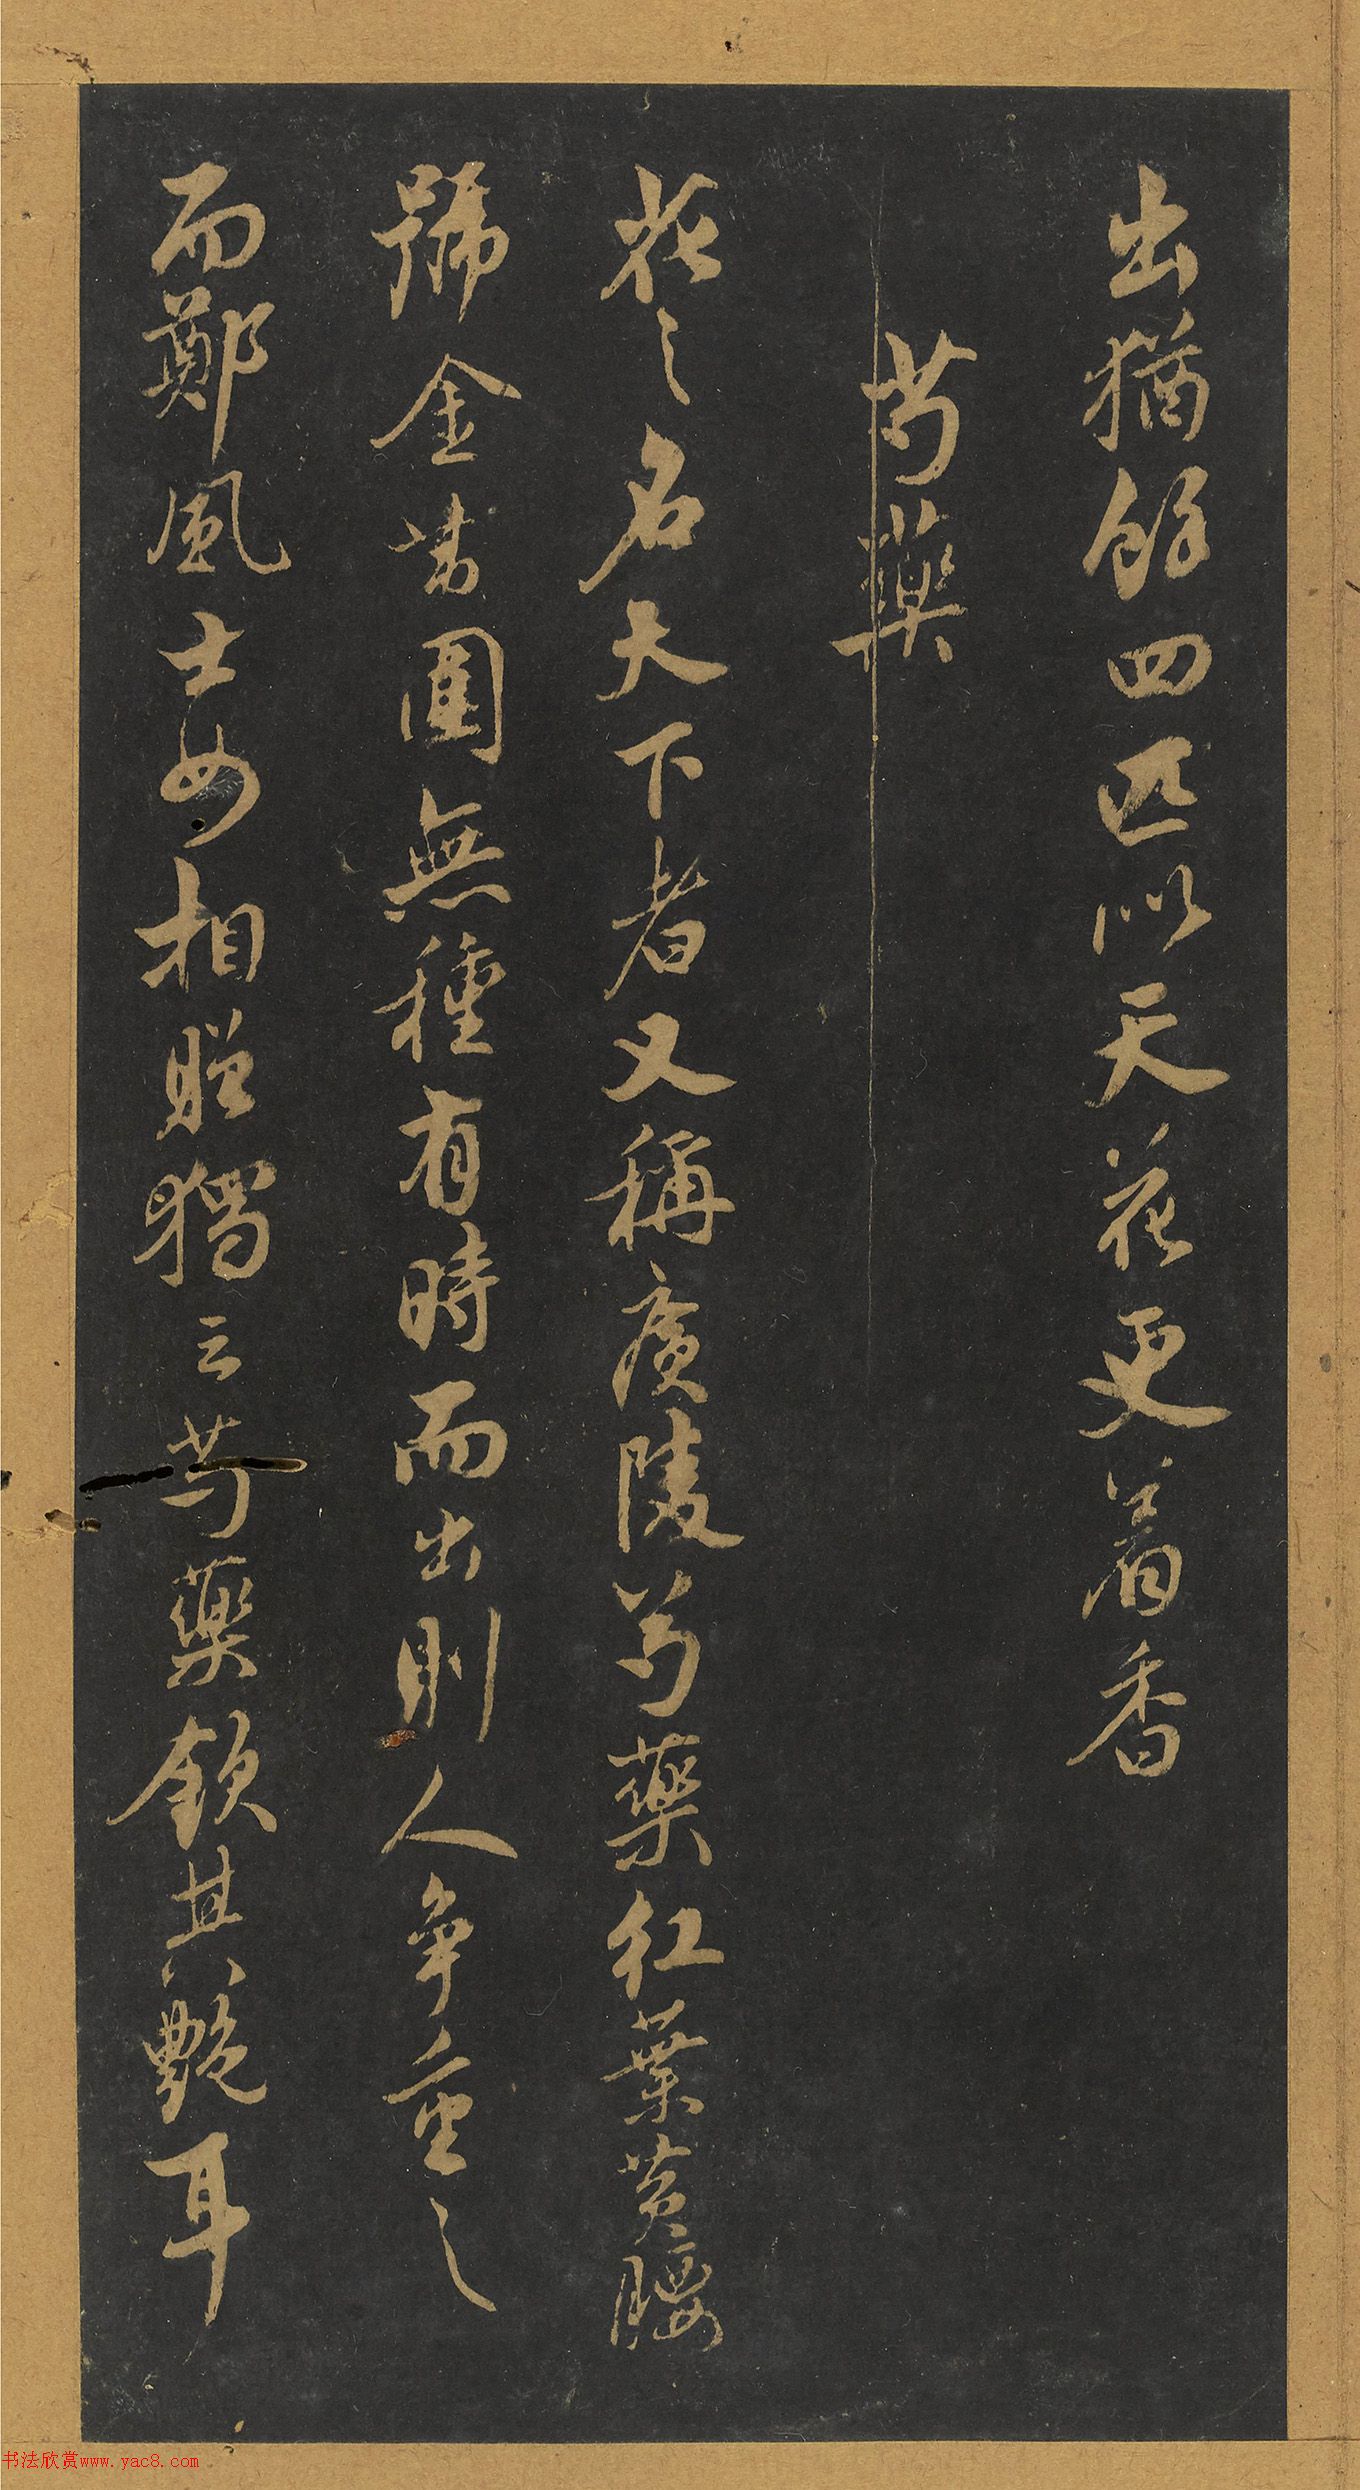 出猶餘四匹以天花更着香
芍藥
花之名天下者又稱廣陵芍藥紅葉黃腰
號金帶圍無種有時而出則人爭重之
而鄭風士女相贈獨云芍藥欽其艷耳
书法欣赏www.yac8.com